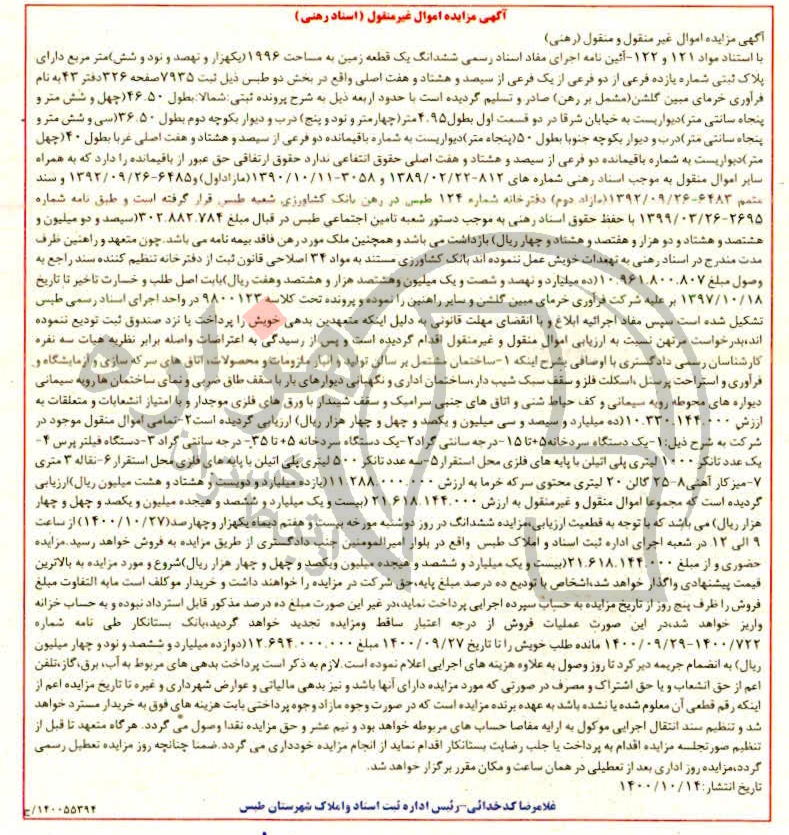 آگهی مزایده اموال غیرمنقول (اسناد رهنی)
آگهی مزایده اموال غیر منقول و منقول (رهنی)
با استناد مواد ۱۲۱ و ۱۲۲-آئین نامه اجرای مفاد اسناد رسمی ششدانگ یک قطعه زمین به مساحت ۱۹۹۶(یکهزار و نهصد و نود و شش)متر مربع دارای
پلاک ثبتی شماره یازده فرعی از دو فرعی از یک فرعی از سیصد و هشتاد و هفت اصلی واقع در بخش دو طبس ذیل ثبت ۷۹۳۵صفحه ۳۲۶دفتر ۴۳به نام
فرآوری خرمای مبین گلشن(مشمل بر رهن) صادر و تسلیم گردیده است با حدود اربعه ذیل به شرح پرونده ثبتی:شمالا:بطول ۴۶.۵۰(چهل و شش متر و
پنجاه سانتی متر)دیواریست به خیابان شرقا در دو قسمت اول بطول۴.۹۵متر(چهارمتر و نود و پنج) درب و دیوار بکوچه دوم بطول ۳۶.۵۰(سی و شش متر و
پنجاه سانتی متر)درب و دیوار بکوچه جنوبا بطول ۵۰(پنجاه متر)دیواریست به شماره باقیمانده دو فرعی از سیصد و هشتاد و هفت اصلی غربا بطول ۴۰(چهل
متر)دیواریست به شماره باقیمانده دو فرعی از سیصد و هشتاد و هفت اصلی حقوق انتفاعی ندارد حقوق ارتفاقی حق عبور از باقیمانده را دارد که به همراه
سایر اموال منقول به موجب اسناد رهنی شماره های ۸۱۲-۱۳۸۹/۰۲/۲۲ و ۳۰۵۸-۱۳۹۰/۱۰/۱۱(مازاداول) و۶۴۸۵-۱۳۹۲/۰۹/۲۶ و سند
متمم ۶۴۸۳-۱۳۹۲/۰۹/۲۶(مازاد دوم) دفترخانه شماره ۱۲۴ طبس در رهن بانک کشاورزی شعبه طبس قرار گرفته است و طبق نامه شماره
۲۶۹۵-۱۳۹۹/۰۳/۲۶ با حفظ حقوق اسناد رهنی به موجب دستور شعبه تامین اجتماعی طبس در قبال مبلغ ۳۰۲.۸۸۲.۷۸۴(سیصد و دو میلیون و
هشتصد و هشتاد و دو هزار و هفتصد و هشتاد و چهار ریال) بازداشت می باشد و همچنین ملک مورد رهن فاقد بیمه نامه می باشد.چون متعهد و راهنین ظرف
مدت مندرج در اسناد رهنی به تعهدات خویش عمل ننموده اند بانک کشاورزی مستند به مواد ۳۴ اصلاحی قانون ثبت از دفترخانه تنظیم کننده سند راجع به
وصول مبلغ ۱۰.۹۶۱.۸۰۰.۸۰۷(ده میلیارد و نهصد و شصت و یک میلیون وهشتصد هزار و هشتصد وهفت ریال)بابت اصل طلب و خسارت تاخیر تا تاریخ
۱۳۹۷/۱۰/۱۸ بر علیه شرکت فرآوری خرمای مبین گلشن و سایر راهنین را نموده و پرونده تحت کلاسه ۹۸۰۰۱۲۳ در واحد اجرای اسناد رسمی طبس
تشکیل شده است سپس مفاد اجرائیه ابلاغ و با انقضای مهلت قانونی به دلیل اینکه متعهدین بدهی خویش را پرداخت یا نزد صندوق ثبت تودیع ننموده
اند،بدرخواست مرتهن نسبت به ارزیابی اموال منقول و غیرمنقول اقدام گردیده است و پس از رسیدگی به اعتراضات واصله برابر نظریه هیات سه نفره
کارشناسان رسمی دادگستری با اوصافی بشرح اینکه ۱-ساختمان مشتمل بر سالن تولید و انبار ملزومات و محصولات، اتاق های سرکه سازی و آزمایشگاه و
فرآوری و استراحت پرسنل ،اسکلت فلز و سقف سبک شیب دار،ساختمان اداری و نگهبانی دیوارهای بار با سقف طاق ضربی و نمای ساختمان ها رویه سیمانی
دیواره های محوطه رویه سیمانی و کف حیاط شنی و اتاق های جنبی سرامیک و سقف شیبدار با ورق های فلزی موجدار و با امتیاز انشعابات و متعلقات به
ارزش ۱۰.۳۳۰.۱۴۴.۰۰۰(ده میلیارد و سیصد و سی میلیون و یکصد و چهل و چهار هزار ریال) ارزیابی گردیده است۲-تمامی اموال منقول موجود در
شرکت به شرح ذیل:۱-یک دستگاه سردخانه۵+تا ۱۵-درجه سانتی گراد۲-یک دستگاه سردخانه ۵+تا ۳۵- درجه سانتی گراد ۳-دستگاه فیلتر پرس ۴-
یک عدد تانکر ۱۰۰۰ لیتری پلی اتیلن با پایه های فلزی محل استقرار ۵-سه عدد تانکر ۵۰۰ لیتری پلی اتیلن با پایه های فلزی محل استقرار ۶-نقاله ۳ متری
۷-میز کار آهنی۸-۲۵ گالن ۲۰ لیتری محتوی سرکه خرما به ارزش ۱۱.۲۸۸.۰۰۰.۰۰۰(یازده میلیارد و دویست و هشتاد و هشت میلیون ریال)ارزیابی
گردیده است که مجموعا اموال منقول و غیرمنقول به ارزش ۲۱.۶۱۸.۱۴۴.۰۰۰ (بیست و یک میلیارد و ششصد و هیجده میلیون و یکصد و چهل و چهار
هزار ریال) می باشد که با توجه به قطعیت ارزیابی،مزایده ششدانگ در روز دوشنبه مورخه بیست و هفتم دیماه یکهزار وچهارصد(۱۴۰۰/۱۰/۲۷) از ساعت
۹ الی ۱۲ در شعبه اجرای اداره ثبت اسناد و املاک طبس واقع در بلوار امیرالمومنین جنب دادگستری از طریق مزایده به فروش خواهد رسید.مزایده
حضوری و از مبلغ ۲۱.۶۱۸.۱۴۴.۰۰۰(بیست و یک میلیارد و ششصد و هیجده میلیون ویکصد و چهل و چهار هزار ریال)شروع و مورد مزایده به بالاترین
قیمت پیشنهادی واگذار خواهد شد،اشخاص با تودیع ده درصد مبلغ پایه،حق شرکت در مزایده را خواهند داشت و خریدار موکلف است مابه التفاوت مبلغ
فروش را ظرف پنج روز از تاریخ مزایده به حساب سپرده اجرایی پرداخت نماید،در غیر این صورت مبلغ ده درصد مذکور قابل استرداد نبوده و به حساب خزانه
واریز خواهد شد،در این صورت عملیات فروش از درجه اعتبار ساقط ومزایده تجدید خواهد گردید،بانک بستانکار طی نامه شماره
۱۴۰۰/۷۲۲-۱۴۰۰/۰۹/۲۹ مانده طلب خویش را تا تاریخ ۱۴۰۰/۰۹/۲۷ مبلغ ۱۲.۶۹۴.۰۰۰.۰۰۰(دوازده میلیارد و ششصد و نود و چهار میلیون
ریال) به انضمام جریمه دیرکرد تا روز وصول به علاوه هزینه های اجرایی اعلام نموده است.لازم به ذکر است پرداخت بدهی های مربوط به آب،برق،گاز،تلفن
اعم از حق انشعاب و یا حق اشتراک و مصرف در صورتی که مورد مزایده دارای آنها باشد و نیز بدهی مالیاتی و عوارض شهرداری و غیره تا تاریخ مزایده اعم از
اینکه رقم قطعی آن معلوم شده یا نشده باشد به عهده برنده مزایده است که در صورت وجوه مازاد وجوه پرداختی بابت هزینه های فوق به خریدار مسترد خواهد
شد و تنظیم سند انتقال اجرایی موکول به ارایه مفاصا حساب های مربوطه خواهد بود و نیم عشر و حق مزایده نقدا وصول می گردد. هرگاه متعهد تا قبل از
تنظیم صورتجلسه مزایده اقدام به پرداخت یا جلب رضایت بستانکار اقدام نماید از انجام مزایده خودداری می گردد.ضمنا چنانچه روز مزایده تعطیل رسمی
گردد،مزایده روز اداری بعد از تعطیلی در همان ساعت و مکان مقرر برگزار خواهد شد.
تاریخ انتشار:۱۴۰۰/۱۰/۱۴
غلامرضا کدخدائی-رئیس اداره ثبت اسناد و املاک شهرستان طبس
۱۴۰۰۵۵۳۹۴/ح